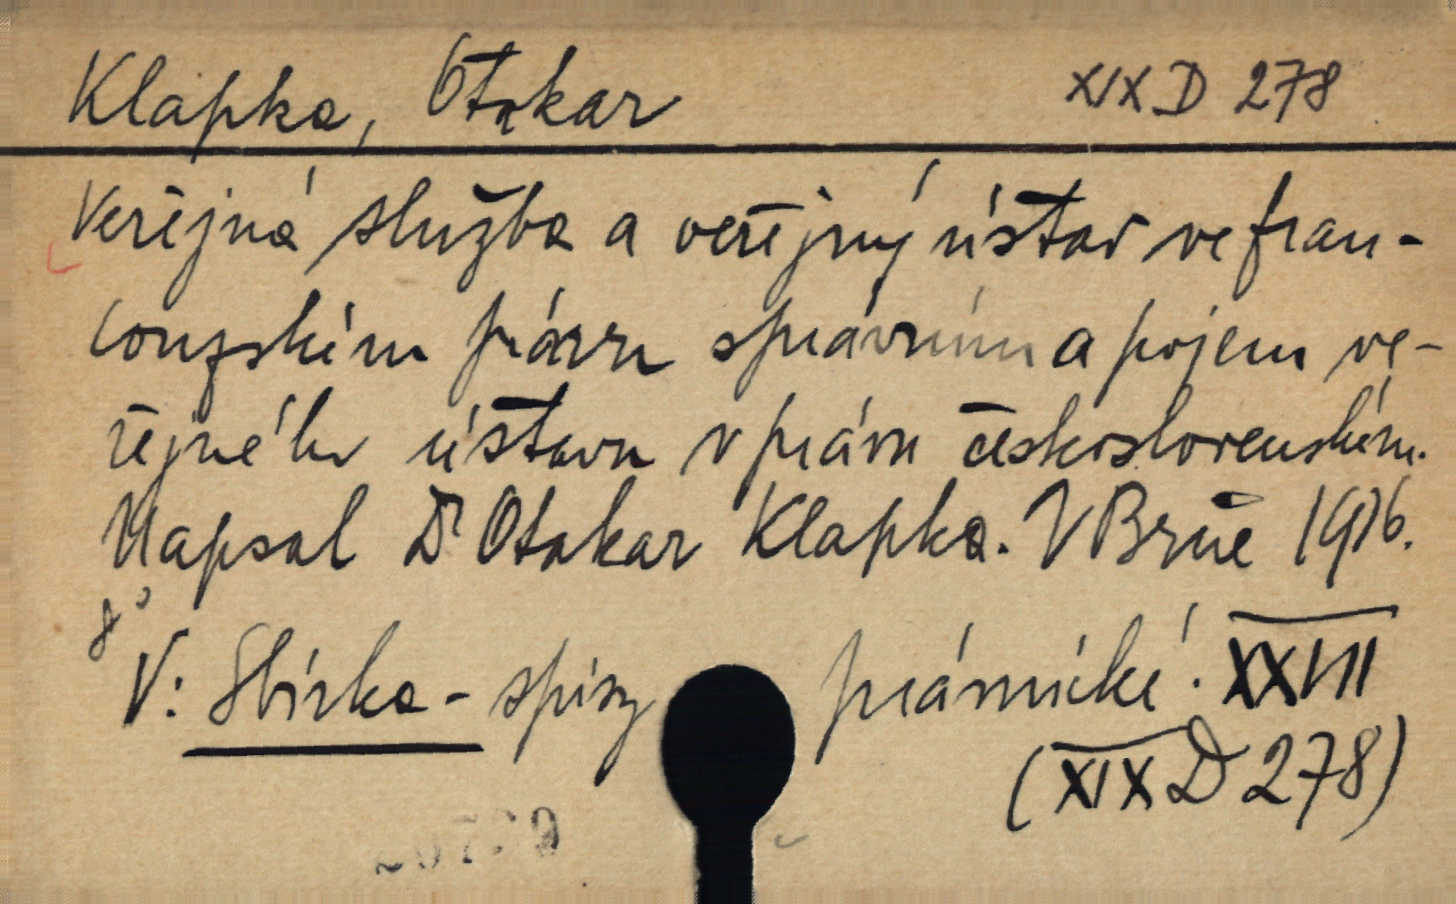 Klapka, Otakar XIX D 278
Veřejná služba a veřejný ústav ve fran-
couzském právu správním a pojem ve-
řejného ústavu v právu československém.
Napsal Dr Otakar Klapka. V Brně 1926.
8°
V: Sbírka - spisy právnické. XXVII
(XIX D 278)